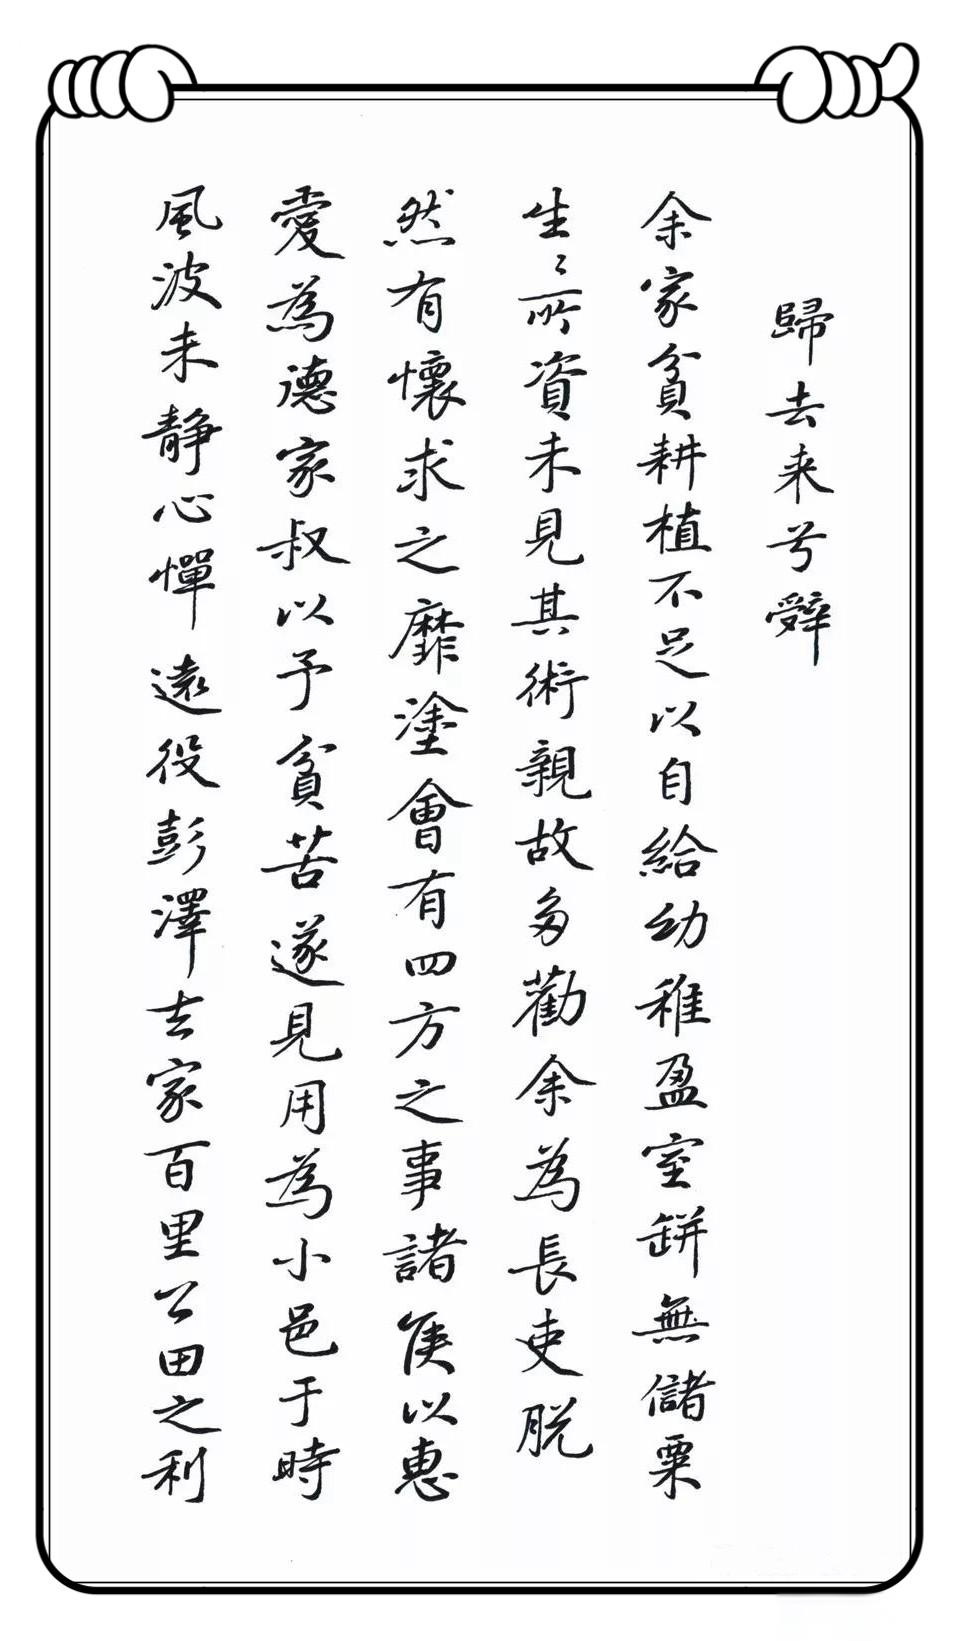 歸去来兮辭
余家貧耕植不足以自給幼稚盈室缾無儲粟
生〻所資未見其術親故多勸余為長吏脱
然有懷求之靡塗會有四方之事諸侯以惠
愛為德家叔以予貧苦遂見用為小邑于時
風波未静心憚遠役彭澤去家百里公田之利